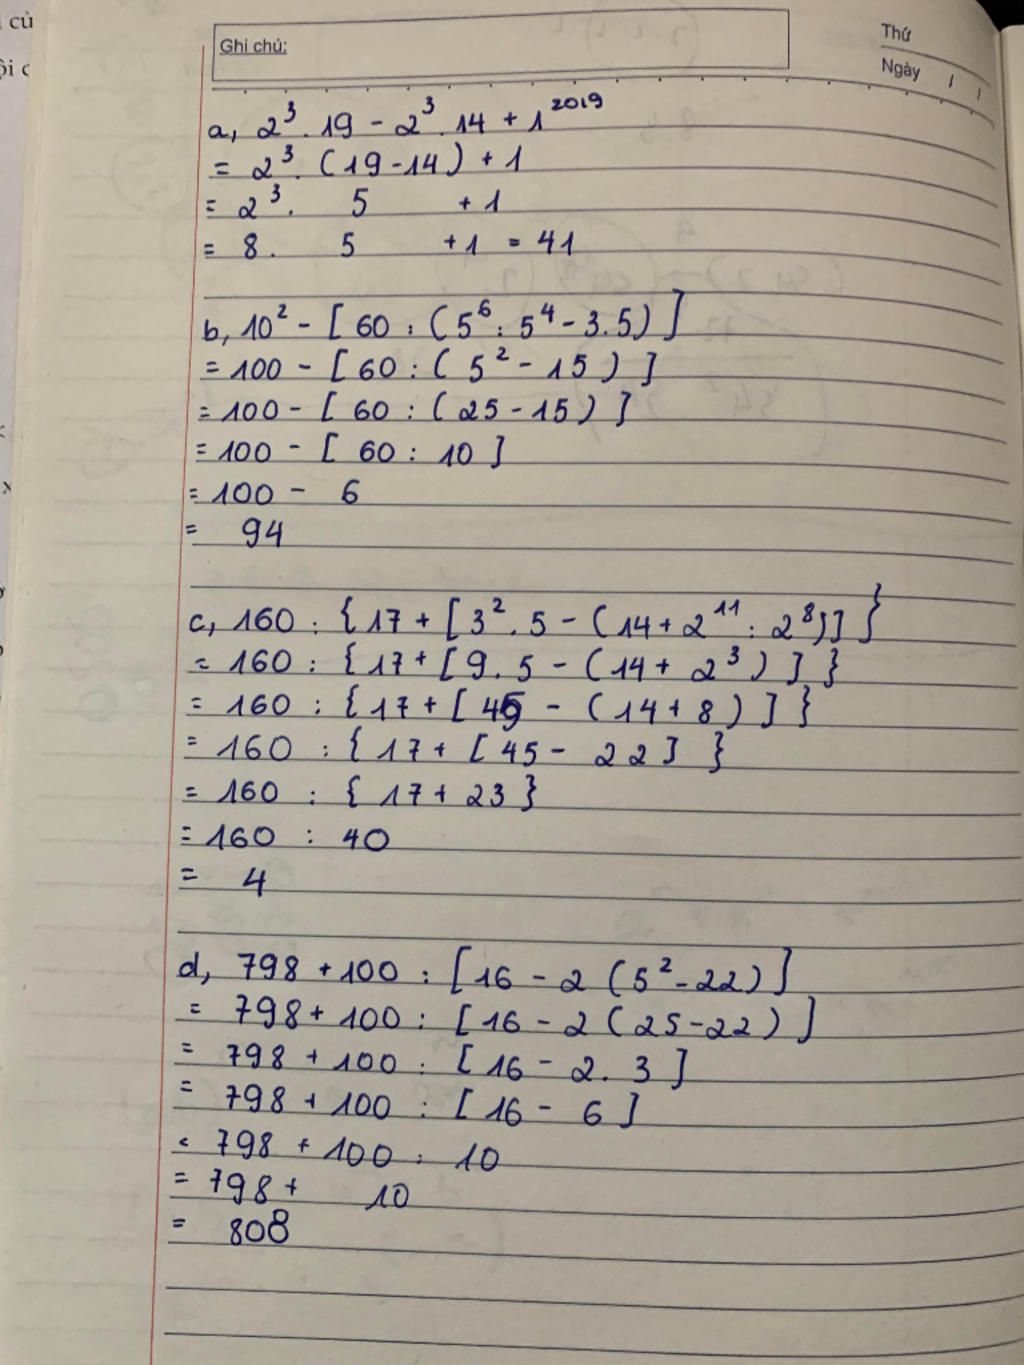 củ
ội c
Ghi chú:
Thứ
Ngày / /
a, 2³ . 19 - 2³ . 14 + 1²⁰¹⁹
= 2³ . (19 - 14) + 1
= 2³ . 5 + 1
= 8 . 5 + 1 = 41
b, 10² - [ 60 : (5⁶ : 5⁴ - 3.5) ]
= 100 - [ 60 : ( 5² - 15 ) ]
= 100 - [ 60 : (25 - 15) ]
= 100 - [ 60 : 10 ]
= 100 - 6
= 94
c, 160 : { 17 + [ 3² . 5 - (14 + 2¹¹ : 2⁸) ] }
= 160 : { 17 + [ 9 . 5 - (14 + 2³ ) ] }
= 160 : { 17 + [ 45 - (14 + 8) ] }
= 160 : { 17 + [ 45 - 22 ] }
= 160 : { 17 + 23 }
= 160 : 40
= 4
d, 798 + 100 : [ 16 - 2 ( 5² - 22 ) ]
= 798 + 100 : [ 16 - 2 ( 25 - 22 ) ]
= 798 + 100 : [ 16 - 2 . 3 ]
= 798 + 100 : [ 16 - 6 ]
= 798 + 100 : 10
= 798 + 10
= 808